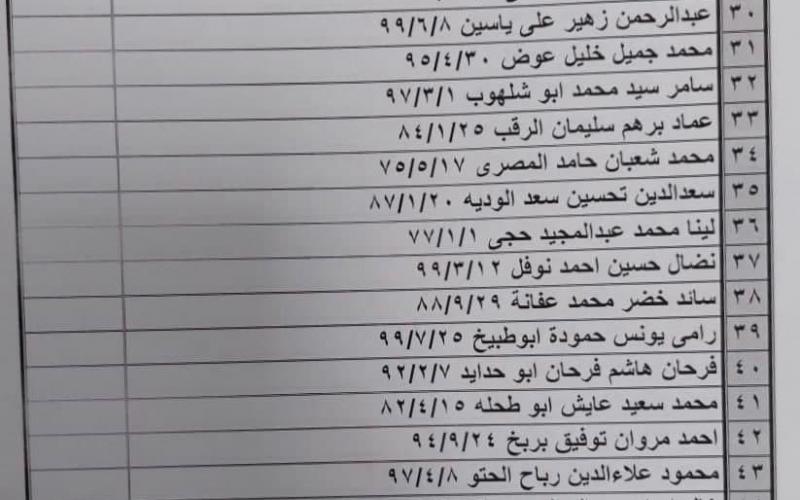 ٣٠ عبدالرحمن زهير على ياسين ٩٩/٦/٨
٣١ محمد جميل خليل عوض ٩٥/٤/٣٠
٣٢ سامر سيد محمد ابو شلهوب ٩٧/٣/١
٣٣ عماد برهم سليمان الرقب ٨٤/١/٢٥
٣٤ محمد شعبان حامد المصرى ٧٥/٥/١٧
٣٥ سعدالدين تحسين سعد الوديه ٨٧/١/٢٠
٣٦ لينا محمد عبدالمجيد حجى ٧٧/١/١
٣٧ نضال حسين احمد نوفل ٩٩/٣/١٢
٣٨ سائد خضر محمد عفانة ٨٨/٩/٢٩
٣٩ رامى يونس حمودة ابوطبيخ ٩٩/٧/٢٥
٤٠ فرحان هاشم فرحان ابو حدايد ٩٢/٢/٧
٤١ محمد سعيد عايش ابو طحله ٨٢/٤/١٥
٤٢ احمد مروان توفيق بربخ ٩٤/٩/٢٤
٤٣ محمود علاءالدين رباح الحتو ٩٧/٤/٨